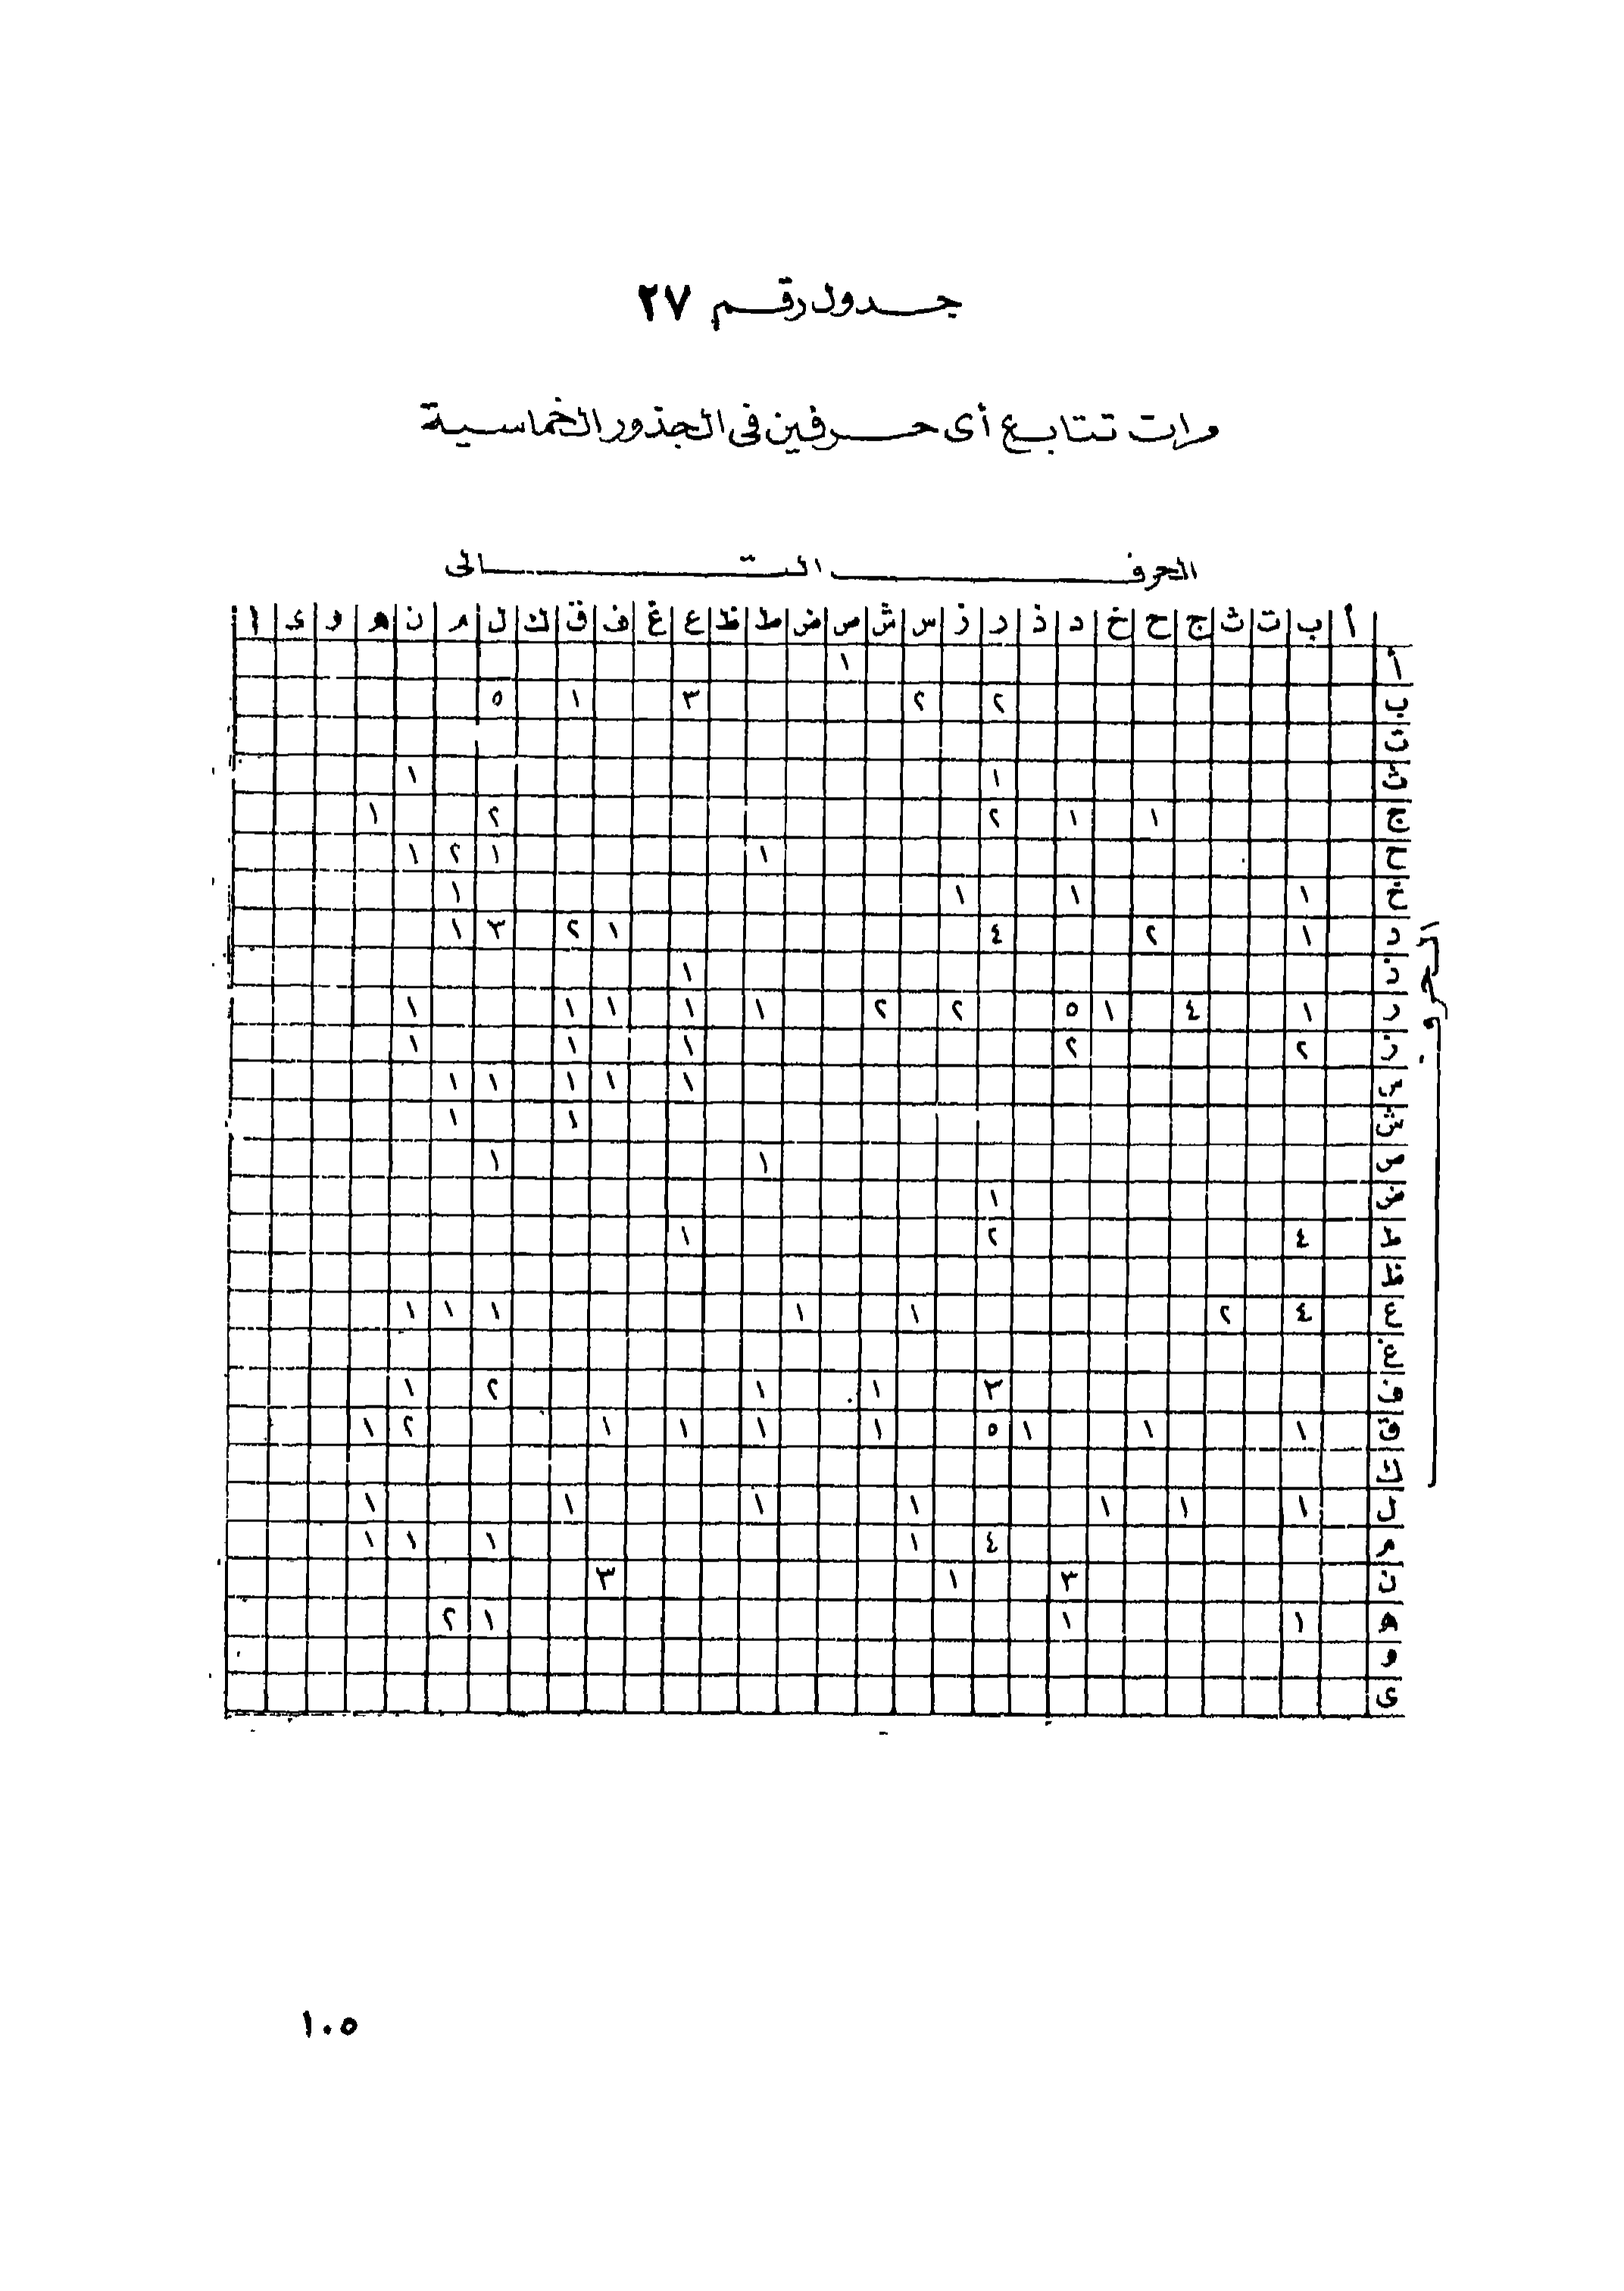 جدول رقم ٢٧
مرات تتابع أى حرفين فى الجذور الخماسية
الحرف التالى
أ ب ت ث ج ح خ د ذ ر ز س ش ص ض ط ظ ع غ ف ق ك ل م ن هـ و ى ا
الحرف
أ ١
ب ٢ ٢ ٣ ١ ٥
ت
ث ١ ١
ج ١ ١ ٢ ٢ ١
ح ١ ١ ٢ ١
خ ١ ١ ١ ١
د ١ ٢ ٤ ١ ٢ ٣ ١
ذ ١
ر ١ ٤ ١ ٥ ٢ ٢ ١ ١ ١ ١ ١
ز ٢ ٢ ١ ١ ١
س ١ ١ ١ ١ ١
ش ١ ١
ص ١ ١
ض ١
ط ٤ ٢ ١
ظ
ع ٤ ٢ ١ ١ ١ ١ ١
غ
ف ٣ ١ ١ ٢ ١
ق ١ ١ ١ ٥ ١ ١ ١ ١ ٢ ١
ك
ل ١ ١ ١ ١ ١ ١ ١
م ٤ ١ ١ ١ ١
ن ٣ ١ ٣
هـ ١ ١ ١ ٢
و
ى
١٠٥